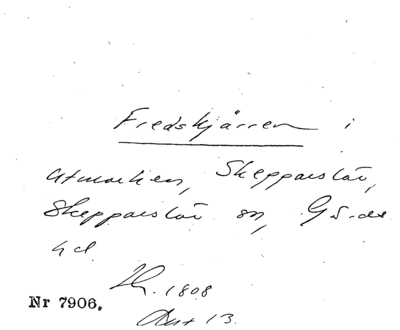 Fredskjärren i
utmarken, Skepparslöv,
Skepparslöv sn, Gä-ds
hd
1808
Nr 7906.
13.